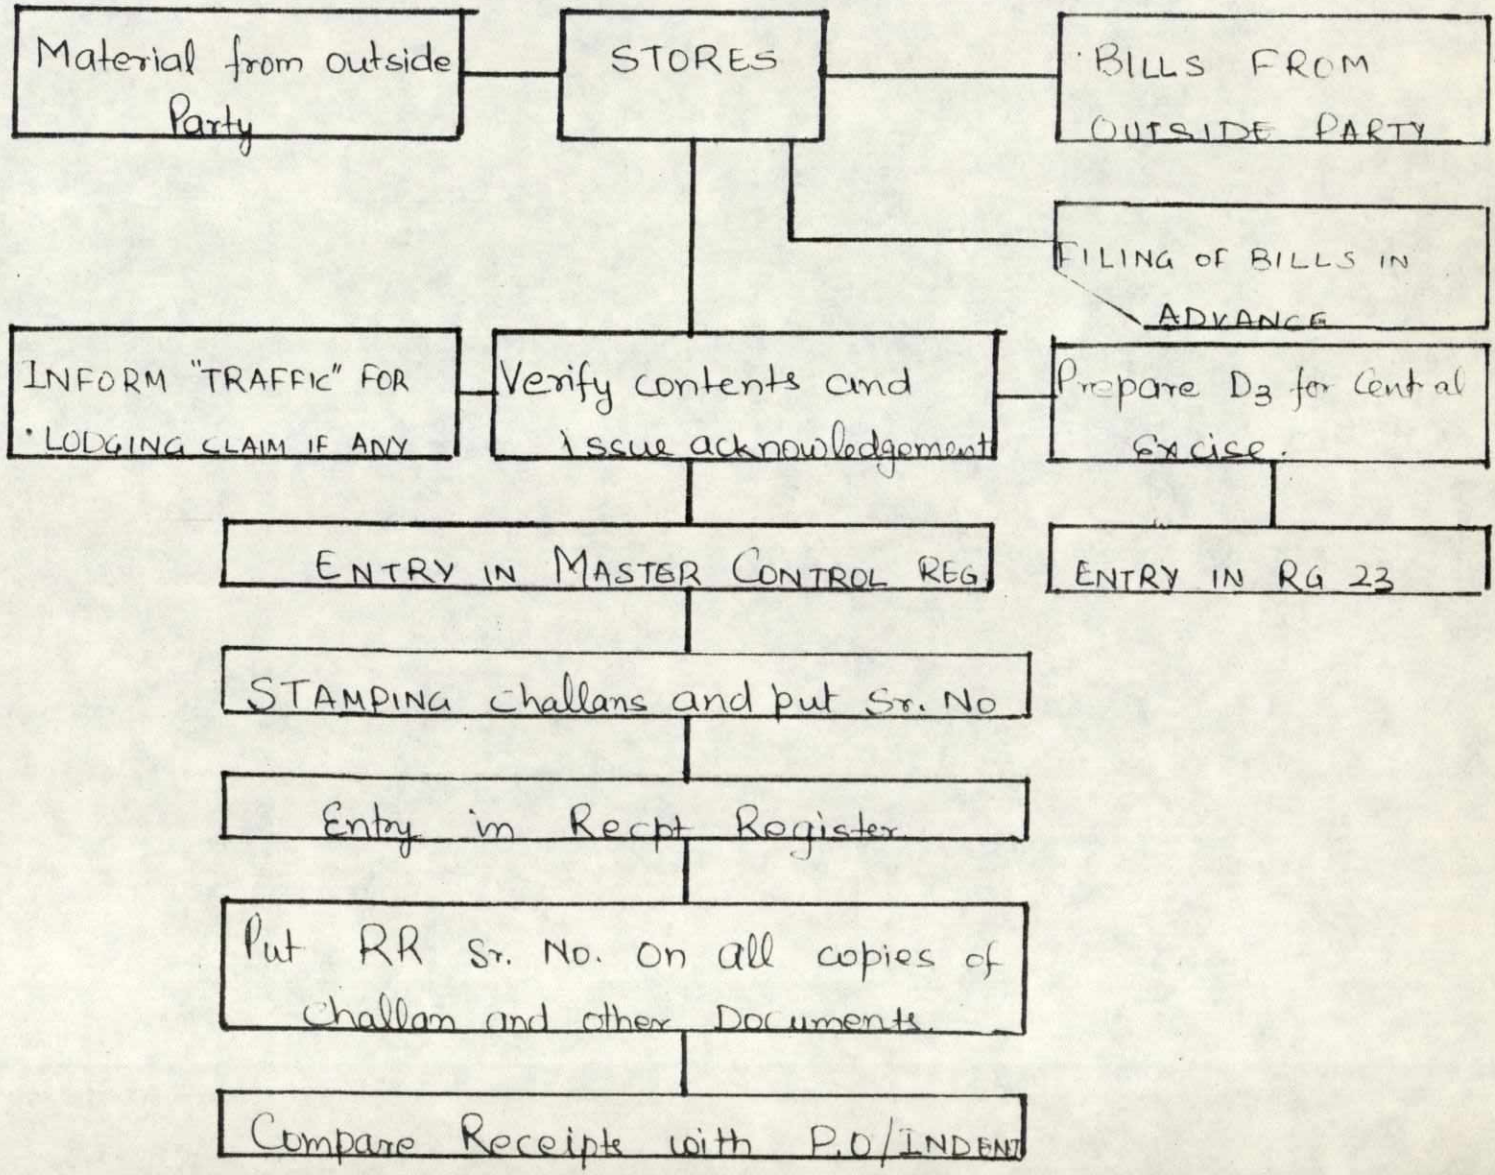 Material from outside
Party
STORES
BILLS FROM
OUTSIDE PARTY
FILING OF BILLS IN
ADVANCE
INFORM "TRAFFIC" FOR
LODGING CLAIM IF ANY
Verify contents and
issue acknowledgement
Prepare D3 for Central
Excise.
ENTRY IN MASTER CONTROL REG
ENTRY IN RG 23
STAMPING challans and put Sr. No
Entry in Recpt Register
Put RR Sr. No. on all copies of
challan and other Documents.
Compare Receipts with P.O/INDENT